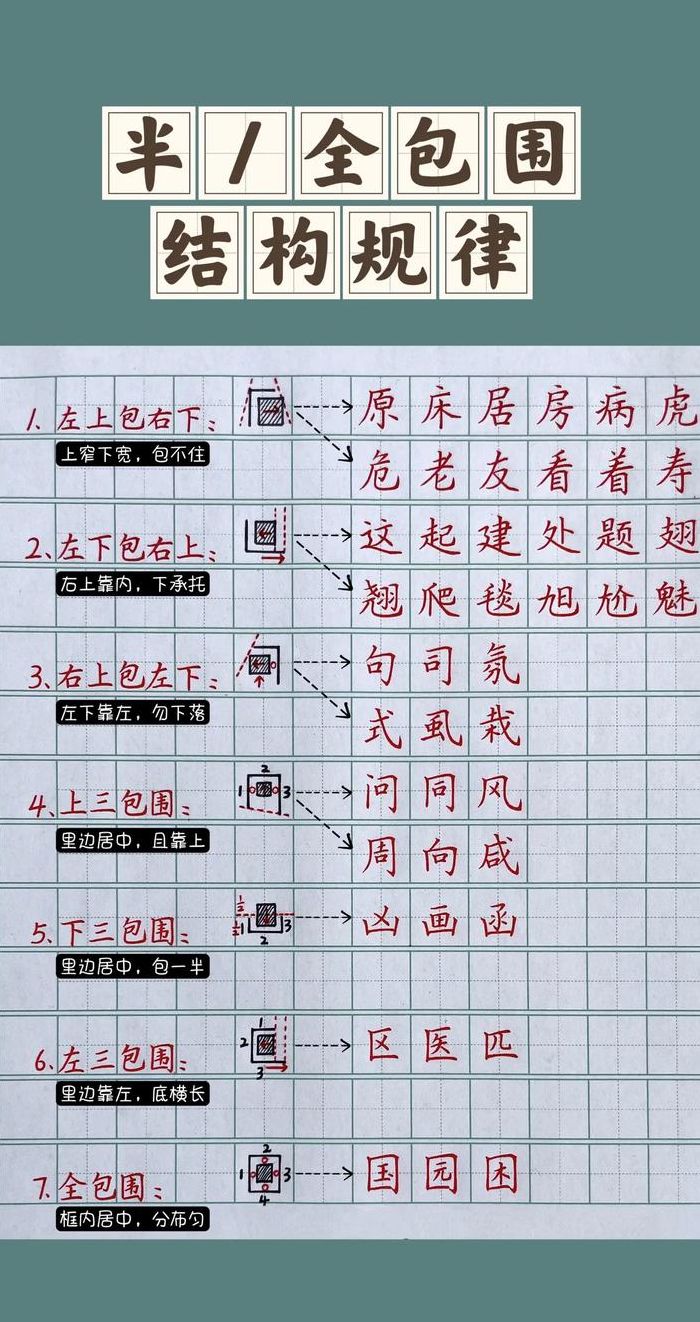 半/全包围
结构规律
1. 左上包右下： 原 床 居 房 病 虎
上窄下宽，包不住 危 老 友 看 着 寿
2、左下包右上： 这 起 建 处 题 翅
右上靠内，下承托 翘 爬 毯 旭 尬 魅
3、右上包左下： 句 司 氛
左下靠左，勿下落 式 虱 栽
4、上三包围： 1 2 3 问 同 风
里边居中，且靠上 周 向 咸
5、下三包围： 1/2 1/2 1 2 3 凶 画 函
里边居中，包一半
6、左三包围： 1 2 3 区 医 匹
里边靠左，底横长
7. 全包围： 1 2 3 4 国 园 困
框内居中，分布匀